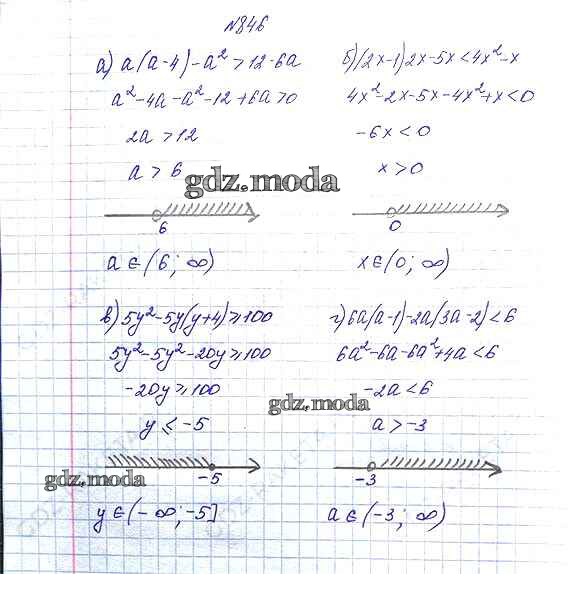 №846
а) a(a-4)-a²>12-6a
a²-4a-a²-12+6a>0
2a>12
a>6
gdz.moda
6
a∈(6; ∞)
б) (2x-1)2x-5x<4x²-x
4x²-2x-5x-4x²+x<0
-6x<0
x>0
0
x∈(0; ∞)
в) 5y²-5y(y+4)≥100
5y²-5y²-20y≥100
-20y≥100
y≤-5
gdz.moda
-5
y∈(-∞; -5]
г) 6a(a-1)-2a(3a-2)<6
6a²-6a-6a²+4a<6
-2a<6
gdz.moda
a>-3
-3
a∈(-3; ∞)